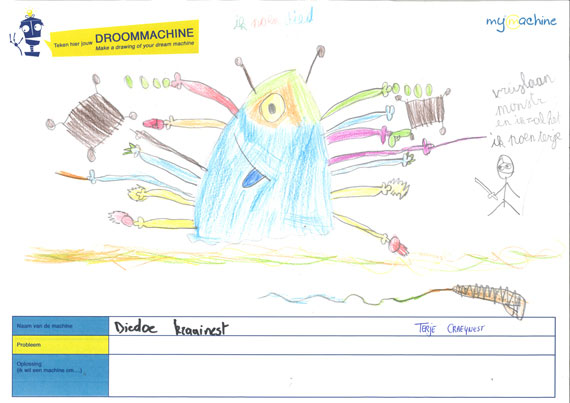 Teken hier jouw DROOMMACHINE
Make a drawing of your dream machine
ik
mymachine
monstr
ik noem terje
Naam van de machine
Diedoe kraainest
TERJE CRAEYNEST
Probleem
Oplossing
(ik wil een machine om....)